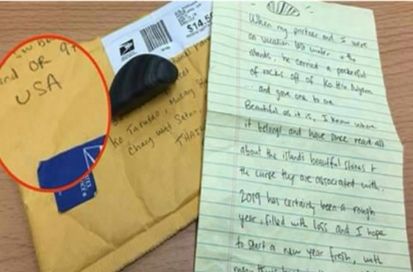 OR 97
USA
$14.5
UNITED STATES
Ko Tarutao, Mueang
Chang wat Satun,
THAI
When my partner and I were
on vacation last winter in the
islands, he carried a pocketful
of rocks off of Ko Hin Ngam
and gave one to me.
Beautiful as it is, I know where
it belongs and have since read all
about the islands beautiful stones &
the curse they are associated with.
2019 has certainly been a rough
year, filled with loss and I hope
to start a new year fresh, with